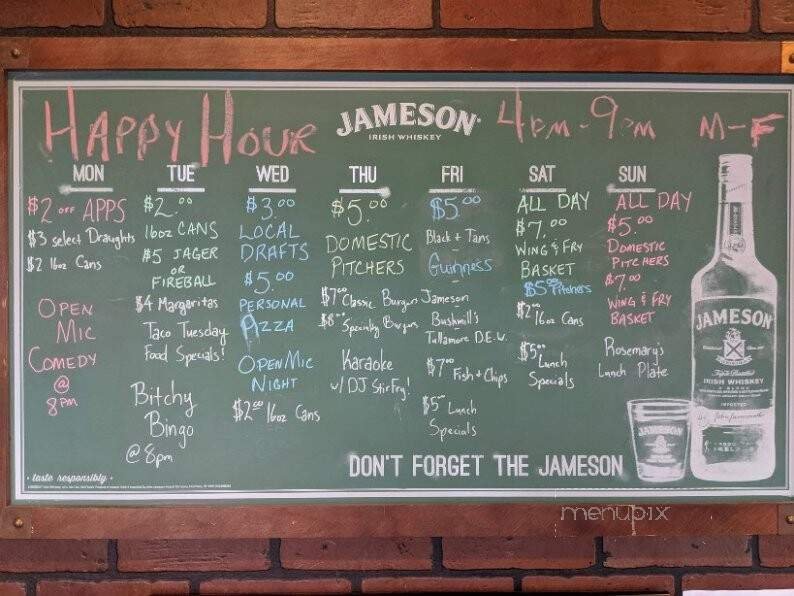 HAPPY HOUR
JAMESON
IRISH WHISKEY
4PM-9PM M-F
MON
$2 OFF APPS
$3 select Draughts
$2 16oz Cans
OPEN
MIC
COMEDY
@
8PM
TUE
$2.00
16oz CANS
$5 JAGER
OR
FIREBALL
$4 Margaritas
Taco Tuesday
Food Specials!
Bitchy
Bingo
@ 8pm
WED
$3.00
LOCAL
DRAFTS
$5.00
PERSONAL
PIZZA
OPEN MIC
NIGHT
$2.00 16oz Cans
THU
$5.00
DOMESTIC
PITCHERS
$7.00 Classic Burgers
$8.00 Specialty Burgers
Karaoke
w/ DJ StirFry!
FRI
$5.00
Black + Tans
-
Guinness
-
Jameson
Bushmill's
Tullamore D.E.W.
$7.00 Fish + Chips
$5.00 Lunch
Specials
SAT
ALL DAY
$7.00
WING & FRY
BASKET
$5.00 Pitchers
$2.00 16oz Cans
$5.00 Lunch
Specials
SUN
ALL DAY
$5.00
DOMESTIC
PITCHERS
$7.00
WING & FRY
BASKET
Rosemary's
Lunch Plate
JAMESON
IRISH WHISKEY
JAMESON
DON'T FORGET THE JAMESON
• taste responsibly •
menupix